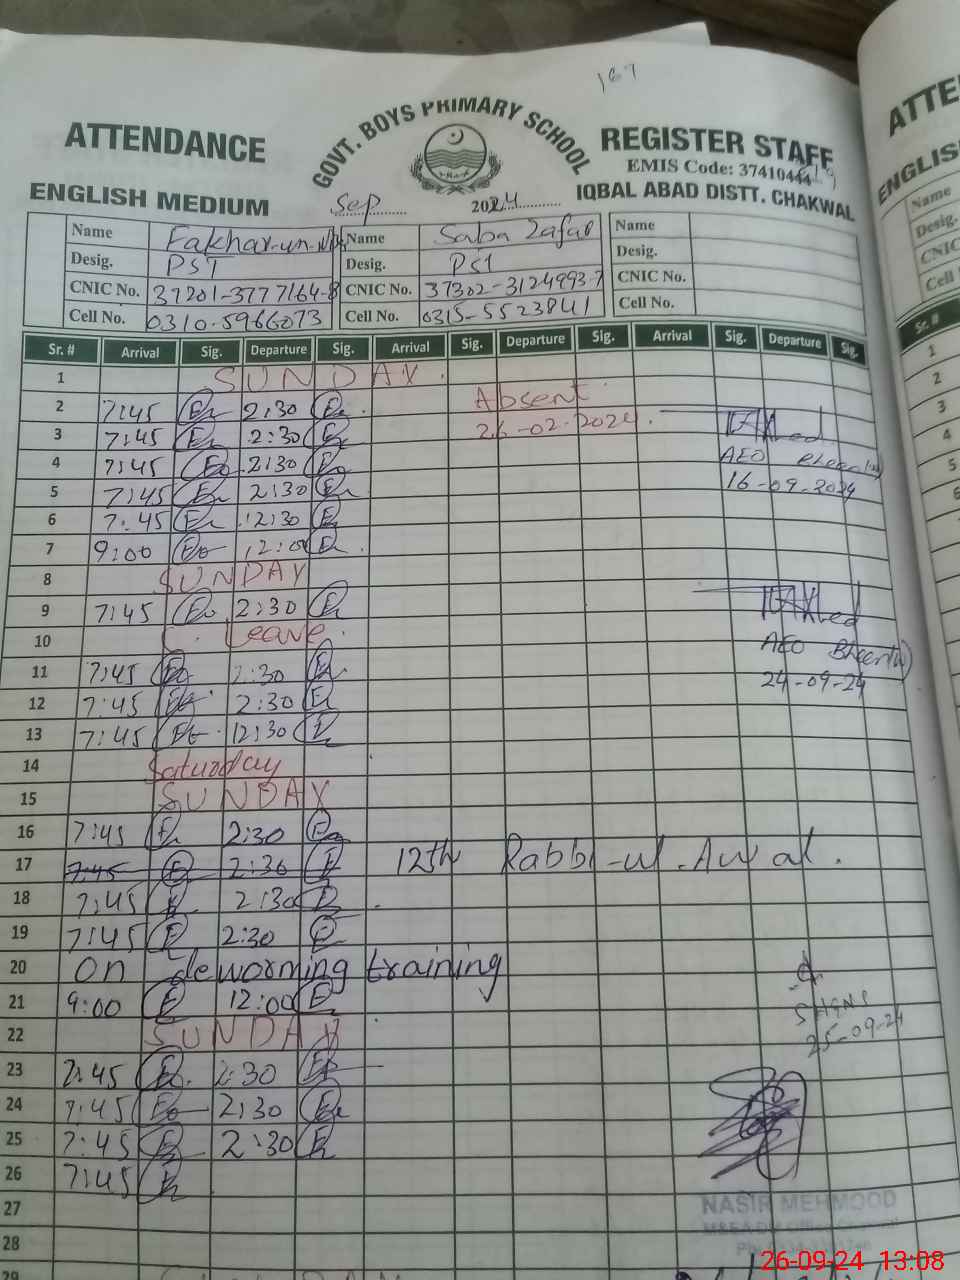 167
GOVT. BOYS PRIMARY SCHOOL
ATTENDANCE
REGISTER STAFF
EMIS Code: 37410444
ENGLISH MEDIUM
Sep 2024
IQBAL ABAD DISTT. CHAKWAL
Name Fakhar-un-Nisa Name Saba Zafar Name
Desig. PST Desig. PST Desig.
CNIC No. 37201-3777164-8 CNIC No. 37302-3124993-7 CNIC No.
Cell No. 0310-5966073 Cell No. 0315-5523841 Cell No.
Sr. # Arrival Sig. Departure Sig. Arrival Sig. Departure Sig. Arrival Sig. Departure Sig.
1 SUNDAY
2 7:45 2:30 Absent
3 7:45 2:30 26-02-2024
4 7:45 2:30 AEO
5 7:45 2:30 16-09-2024
6 7:45 12:30
7 9:00 12:00
8 SUNDAY
9 7:45 2:30
10 C. Leave
11 7:45 2:30 AEO
12 7:45 2:30 24-09-24
13 7:45 12:30
14 Saturday
15 SUNDAY
16 7:45 2:30
17 7:45 2:30 12th Rabbi-ul-Awal.
18 7:45 2:30
19 7:45 2:30
20 on deworming training
21 9:00 12:00
22 SUNDAY 25-09-24
23 7:45 2:30
24 7:45 2:30
25 7:45 2:30
26 7:45
27 NASIR MEHMOOD
28
29
26-09-24 13:08
ATTE
ENGLIS
Name
Desig.
CNIC
Cell
Sr. #
1
2
3
4
5
6